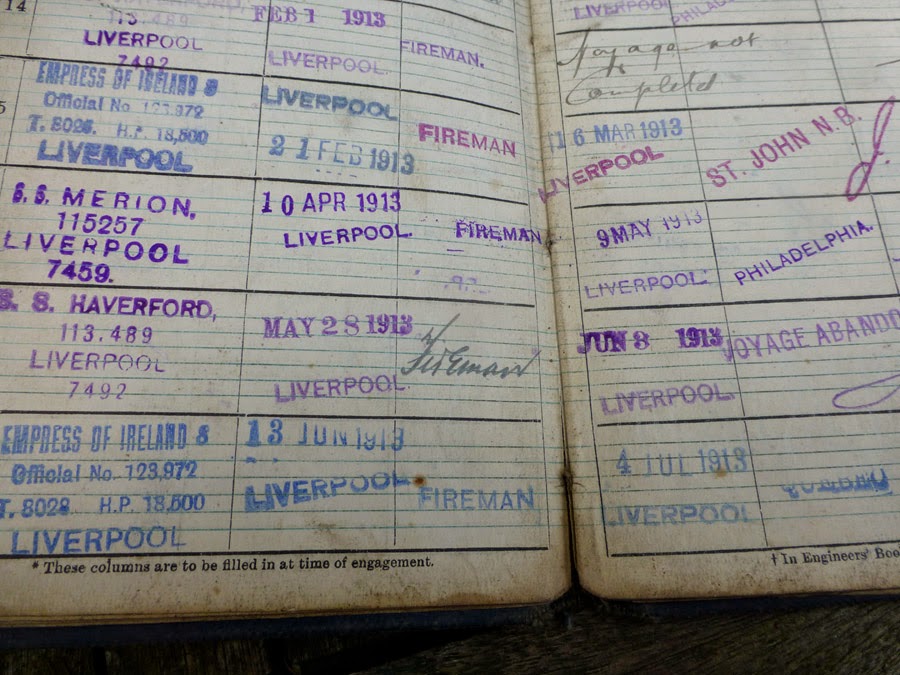 14
113.489
LIVERPOOL
7492
FEB 1 1913
LIVERPOOL.
FIREMAN.
EMPRESS OF IRELAND S
Official No. 123,972
T. 8028. H.P. 18,500
LIVERPOOL
LIVERPOOL
21 FEB 1913
FIREMAN
S. S. MERION,
115257
LIVERPOOL
7459.
10 APR 1913
LIVERPOOL.
FIREMAN
S. S. HAVERFORD,
113.489
LIVERPOOL
7492
MAY 28 1913
LIVERPOOL.
Fireman
EMPRESS OF IRELAND S
Official No. 123,972
T. 8028 H.P. 18,500
LIVERPOOL
13 JUN 1913
LIVERPOOL
FIREMAN
* These columns are to be filled in at time of engagement.
LIVERPOOL
Voyage not
Completed
16 MAR 1913
LIVERPOOL
ST. JOHN N.B.
9 MAY 1913
LIVERPOOL.
PHILADELPHIA.
JUN 8 1913
LIVERPOOL.
VOYAGE ABANDO
4 JUL 1913
LIVERPOOL
† In Engineers' Boo